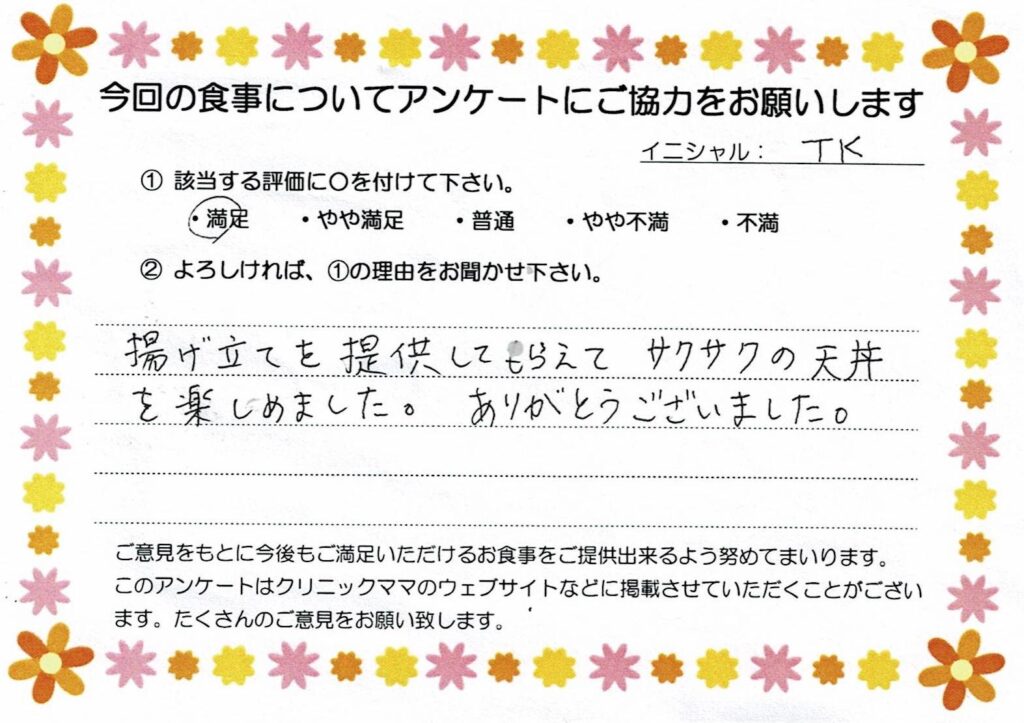 今回の食事についてアンケートにご協力をお願いします
イニシャル： TK
① 該当する評価に〇を付けて下さい。
・満足 ・やや満足 ・普通 ・やや不満 ・不満
② よろしければ、①の理由をお聞かせ下さい。
揚げ立てを提供してもらえて サクサクの天丼
を楽しめました。 ありがとうございました。
ご意見をもとに今後もご満足いただけるお食事をご提供出来るよう努めてまいります。
このアンケートはクリニックママのウェブサイトなどに掲載させていただくことがござい
ます。たくさんのご意見をお願い致します。